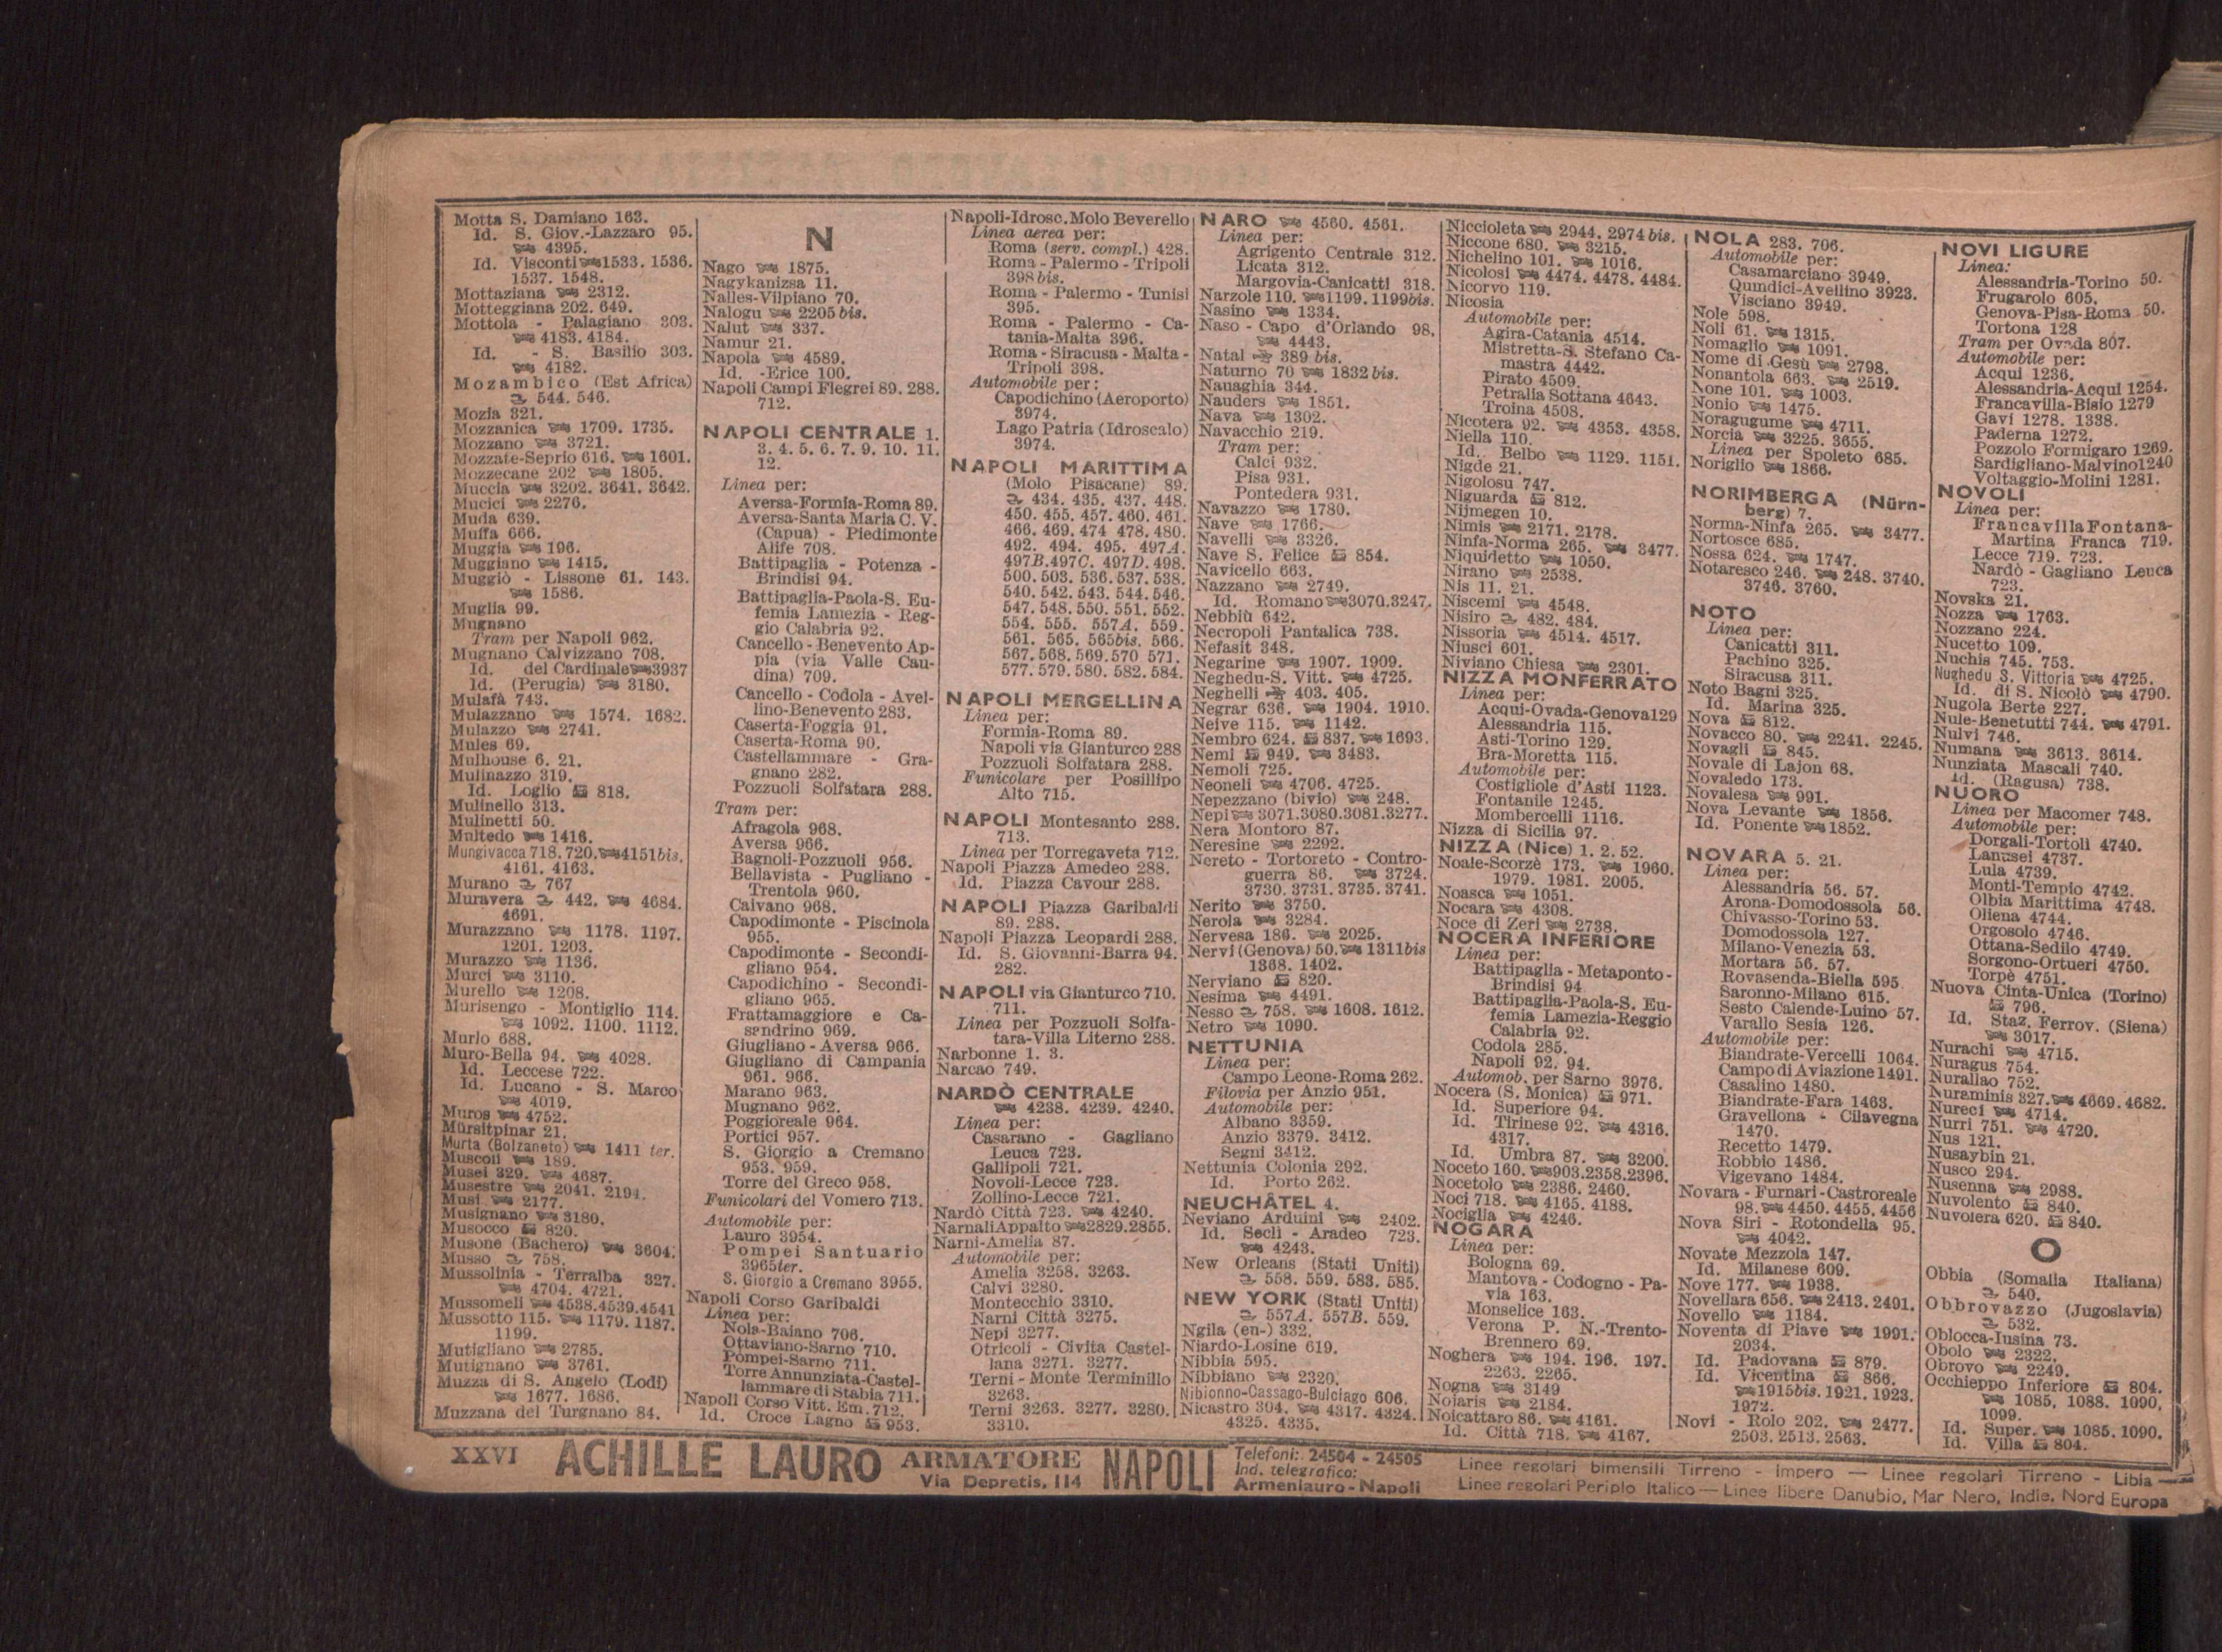 Motta S. Damiano 163.
Id. S. Giov.-Lazzaro 95.
4395.
Id. Visconti 1533. 1536.
1537. 1548.
Mottaziana 2312.
Motteggiana 202. 649.
Mottola - Palagiano 303.
4183. 4184.
Id. - S. Basilio 303.
4182.
Mozambico (Est Africa)
544. 546.
Mozia 321.
Mozzanica 1709. 1735.
Mozzano 3721.
Mozzate-Seprio 616. 1601.
Mozzecane 202 1805.
Muccia 3202. 3641. 3642.
Mucici 2276.
Muda 639.
Muffa 666.
Muggia 196.
Muggiano 1415.
Muggiò - Lissone 61. 143.
1586.
Muglia 99.
Mugnano
Tram per Napoli 962.
Mugnano Calvizzano 708.
Id. del Cardinale 3937
Id. (Perugia) 3180.
Mulafà 743.
Mulazzano 1574. 1682.
Mulazzo 2741.
Mules 69.
Mulhouse 6. 21.
Mulinazzo 319.
Id. Loglio 818.
Mulinello 313.
Mulinetti 50.
Multedo 1416.
Mungivacca 718. 720. 4151bis.
4161. 4163.
Murano 767
Muravera 442. 4684.
4691.
Murazzano 1178. 1197.
1201. 1203.
Murazzo 1136.
Murci 3110.
Murello 1208.
Murisengo - Montiglio 114.
1092. 1100. 1112.
Murlo 688.
Muro-Bella 94. 4028.
Id. Leccese 722.
Id. Lucano - S. Marco
4019.
Muros 4752.
Mürsitpinar 21.
Murta (Bolzaneto) 1411 ter.
Muscoli 189.
Musei 329. 4687.
Musestre 2041. 2194.
Musi 2177.
Musignano 3180.
Musocco 820.
Musone (Bachero) 3604.
Musso 758.
Mussolinia - Terralba 327.
4704. 4721.
Mussomeli 4538.4539.4541
Mussotto 115. 1179. 1187.
1199.
Mutigliano 2785.
Mutignano 3761.
Muzza di S. Angelo (Lodi)
1677. 1686.
Muzzana del Turgnano 84.
N
Nago 1875.
Nagykanizsa 11.
Nalles-Vilpiano 70.
Nalogu 2205 bis.
Nalut 337.
Namur 21.
Napola 4589.
Id. -Erice 100.
Napoli Campi Flegrei 89. 288.
712.
NAPOLI CENTRALE 1.
3. 4. 5. 6. 7. 9. 10. 11.
12.
Linea per:
Aversa-Formia-Roma 89.
Aversa-Santa Maria C. V.
(Capua) - Piedimonte
Alife 708.
Battipaglia - Potenza -
Brindisi 94.
Battipaglia-Paola-S. Eu-
femia Lamezia - Reg-
gio Calabria 92.
Cancello - Benevento Ap-
pia (via Valle Cau-
dina) 709.
Cancello - Codola - Avel-
lino-Benevento 283.
Caserta-Foggia 91.
Caserta-Roma 90.
Castellammare - Gra-
gnano 282.
Pozzuoli Solfatara 288.
Tram per:
Afragola 968.
Aversa 966.
Bagnoli-Pozzuoli 956.
Bellavista - Pugliano -
Trentola 960.
Caivano 968.
Capodimonte - Piscinola
955.
Capodimonte - Secondi-
gliano 954.
Capodichino - Secondi-
gliano 965.
Frattamaggiore e Ca-
sandrino 969.
Giugliano - Aversa 966.
Giugliano di Campania
961. 966.
Marano 963.
Mugnano 962.
Poggioreale 964.
Portici 957.
S. Giorgio a Cremano
953. 959.
Torre del Greco 958.
Funicolari del Vomero 713.
Automobile per:
Lauro 3954.
Pompei Santuario
3965ter.
S. Giorgio a Cremano 3955.
Napoli Corso Garibaldi
Linea per:
Nola-Baiano 706.
Ottaviano-Sarno 710.
Pompei-Sarno 711.
Torre Annunziata-Castel-
lammare di Stabia 711.
Napoli Corso Vitt. Em. 712.
Id. Croce Lagno 953.
Napoli-Idrosc. Molo Beverello
Linea aerea per:
Roma (serv. compl.) 428.
Roma - Palermo - Tripoli
398 bis.
Roma - Palermo - Tunisi
395.
Roma - Palermo - Ca-
tania-Malta 396.
Roma - Siracusa - Malta -
Tripoli 398.
Automobile per:
Capodichino (Aeroporto)
3974.
Lago Patria (Idroscalo)
3974.
NAPOLI MARITTIMA
(Molo Pisacane) 89.
434. 435. 437. 448.
450. 455. 457. 460. 461.
466. 469. 474 478. 480.
492. 494. 495. 497A.
497B.497C. 497D. 498.
500. 503. 536. 537. 538.
540. 542. 543. 544. 546.
547. 548. 550. 551. 552.
554. 555. 557A. 559.
561. 565. 565bis. 566.
567. 568. 569.570 571.
577. 579. 580. 582. 584.
NAPOLI MERGELLINA
Linea per:
Formia-Roma 89.
Napoli via Gianturco 288
Pozzuoli Solfatara 288.
Funicolare per Posillipo
Alto 715.
NAPOLI Montesanto 288.
713.
Linea per Torregaveta 712.
Napoli Piazza Amedeo 288.
Id. Piazza Cavour 288.
NAPOLI Piazza Garibaldi
89. 288.
Napoli Piazza Leopardi 288.
Id. S. Giovanni-Barra 94.
282.
NAPOLI via Gianturco 710.
711.
Linea per Pozzuoli Solfa-
tara-Villa Literno 288.
Narbonne 1. 3.
Narcao 749.
NARDÒ CENTRALE
4238. 4239. 4240.
Linea per:
Casarano - Gagliano
Leuca 723.
Gallipoli 721.
Novoli-Lecce 723.
Zollino-Lecce 721.
Nardò Città 723. 4240.
Narnali Appalto 2829.2855.
Narni-Amelia 87.
Automobile per:
Amelia 3258. 3263.
Calvi 3280.
Montecchio 3310.
Narni Città 3275.
Nepi 3277.
Otricoli - Civita Castel-
lana 3271. 3277.
Terni - Monte Terminillo
3263.
Terni 3263. 3277. 3280.
3310.
NARO 4560. 4561.
Linea per:
Agrigento Centrale 312.
Licata 312.
Margovia-Canicatti 318.
Narzole 110. 1199. 1199bis.
Nasino 1334.
Naso - Capo d'Orlando 98.
4443.
Natal 389 bis.
Naturno 70 1832 bis.
Nauaghia 344.
Nauders 1851.
Nava 1302.
Navacchio 219.
Tram per:
Calci 932.
Pisa 931.
Pontedera 931.
Navazzo 1780.
Nave 1766.
Navelli 3326.
Nave S. Felice 854.
Navicello 663.
Nazzano 2749.
Id. Romano 3070.3247.
Nebbiù 642.
Necropoli Pantalica 738.
Nefasit 348.
Negarine 1907. 1909.
Neghedu-S. Vitt. 4725.
Neghelli 403. 405.
Negrar 636. 1904. 1910.
Neive 115. 1142.
Nembro 624. 837. 1693.
Nemi 949. 3483.
Nemoli 725.
Neoneli 4706. 4725.
Nepezzano (bivio) 248.
Nepi 3071.3080.3081.3277.
Nera Montoro 87.
Neresine 2292.
Nereto - Tortoreto - Contro-
guerra 86. 3724.
3730. 3731. 3735. 3741.
Nerito 3750.
Nerola 3284.
Nervesa 186. 2025.
Nervi (Genova) 50. 1311bis
1368. 1402.
Nerviano 820.
Nesima 4491.
Nesso 758. 1608. 1612.
Netro 1090.
NETTUNIA
Linea per:
Campo Leone-Roma 262.
Filovia per Anzio 951.
Automobile per:
Albano 3359.
Anzio 3379. 3412.
Segni 3412.
Nettunia Colonia 292.
Id. Porto 262.
NEUCHÂTEL 4.
Neviano Arduini 2402.
Id. Seclì - Aradeo 723.
4243.
New Orleans (Stati Uniti)
558. 559. 583. 585.
NEW YORK (Stati Uniti)
557A. 557B. 559.
Ngila (en-) 332.
Niardo-Losine 619.
Nibbia 595.
Nibbiano 2320.
Nibionno-Cassago-Bulciago 606.
Nicastro 304. 4317. 4324.
4325. 4335.
Niccioleta 2944. 2974 bis.
Niccone 680. 3215.
Nichelino 101. 1016.
Nicolosi 4474. 4478. 4484.
Nicorvo 119.
Nicosia
Automobile per:
Agira-Catania 4514.
Mistretta-S. Stefano Ca-
mastra 4442.
Pirato 4509.
Petralia Sottana 4643.
Troina 4508.
Nicotera 92. 4353. 4358.
Niella 110.
Id. Belbo 1129. 1151.
Nigde 21.
Nigolosu 747.
Niguarda 812.
Nijmegen 10.
Nimis 2171. 2178.
Ninfa-Norma 265. 3477.
Niquidetto 1050.
Nirano 2538.
Nis 11. 21.
Niscemi 4548.
Nisiro 482. 484.
Nissoria 4514. 4517.
Niusci 601.
Niviano Chiesa 2301.
NIZZA MONFERRATO
Linea per:
Acqui-Ovada-Genova129
Alessandria 115.
Asti-Torino 129.
Bra-Moretta 115.
Automobile per:
Costigliole d'Asti 1123.
Fontanile 1245.
Mombercelli 1116.
Nizza di Sicilia 97.
NIZZA (Nice) 1. 2. 52.
Noale-Scorzè 173. 1960.
1979. 1981. 2005.
Noasca 1051.
Nocara 4308.
Noce di Zeri 2738.
NOCERA INFERIORE
Linea per:
Battipaglia - Metaponto -
Brindisi 94
Battipaglia-Paola-S. Eu-
femia Lamezia-Reggio
Calabria 92.
Codola 285.
Napoli 92. 94.
Automob. per Sarno 3976.
Nocera (S. Monica) 971.
Id. Superiore 94.
Id. Tirinese 92. 4316.
4317.
Id. Umbra 87. 3200.
Noceto 160. 903.2358.2396.
Nocetolo 2386. 2460.
Noci 718. 4165. 4188.
Nociglia 4246.
NOGARA
Linea per:
Bologna 69.
Mantova - Codogno - Pa-
via 163.
Monselice 163.
Verona P. N.-Trento-
Brennero 69.
Noghera 194. 196. 197.
2263. 2265.
Nogna 3149
Nojaris 2184.
Noicattaro 86. 4161.
Id. Città 718. 4167.
NOLA 283. 706.
Automobile per:
Casamarciano 3949.
Quindici-Avellino 3923.
Visciano 3949.
Nole 598.
Noli 61. 1315.
Nomaglio 1091.
Nome di Gesù 2798.
Nonantola 663. 2519.
None 101. 1003.
Nonio 1475.
Noragugume 4711.
Norcia 3225. 3655.
Linea per Spoleto 685.
Noriglio 1866.
NORIMBERGA (Nürn-
berg) 7.
Norma-Ninfa 265. 3477.
Nortosce 685.
Nossa 624. 1747.
Notaresco 246. 248. 3740.
3746. 3760.
NOTO
Linea per:
Canicatti 311.
Pachino 325.
Siracusa 311.
Noto Bagni 325.
Id. Marina 325.
Nova 812.
Novacco 80. 2241. 2245.
Novagli 845.
Novale di Lajon 68.
Novaledo 173.
Novalesa 991.
Nova Levante 1856.
Id. Ponente 1852.
NOVARA 5. 21.
Linea per:
Alessandria 56. 57.
Arona-Domodossola 56.
Chivasso-Torino 53.
Domodossola 127.
Milano-Venezia 53.
Mortara 56. 57.
Rovasenda-Biella 595
Saronno-Milano 615.
Sesto Calende-Luino 57.
Varallo Sesia 126.
Automobile per:
Biandrate-Vercelli 1064.
Campo di Aviazione 1491.
Casalino 1480.
Biandrate-Fara 1463.
Gravellona - Cilavegna
1470.
Recetto 1479.
Robbio 1486.
Vigevano 1484.
Novara - Furnari - Castroreale
98. 4450. 4455. 4456
Nova Siri - Rotondella 95.
4042.
Novate Mezzola 147.
Id. Milanese 609.
Nove 177. 1938.
Novellara 656. 2413. 2491.
Novello 1184.
Noventa di Piave 1991.
2034.
Id. Padovana 879.
Id. Vicentina 866.
1915bis. 1921. 1923.
1972.
Novi - Rolo 202. 2477.
2503. 2513. 2563.
NOVI LIGURE
Linea:
Alessandria-Torino 50.
Frugarolo 605.
Genova-Pisa-Roma 50.
Tortona 128
Tram per Ovada 807.
Automobile per:
Acqui 1236.
Alessandria-Acqui 1254.
Francavilla-Bisio 1279
Gavi 1278. 1338.
Paderna 1272.
Pozzolo Formigaro 1269.
Sardigliano-Malvino1240
Voltaggio-Molini 1281.
NOVOLI
Linea per:
Francavilla Fontana-
Martina Franca 719.
Lecce 719. 723.
Nardò - Gagliano Leuca
723.
Novska 21.
Nozza 1763.
Nozzano 224.
Nucetto 109.
Nuchis 745. 753.
Nughedu S. Vittoria 4725.
Id. di S. Nicolò 4790.
Nugola Berte 227.
Nule-Benetutti 744. 4791.
Nulvi 746.
Numana 3613. 3614.
Nunziata Mascali 740.
Id. (Ragusa) 738.
NUORO
Linea per Macomer 748.
Automobile per:
Dorgali-Tortoli 4740.
Lanusei 4737.
Lula 4739.
Monti-Tempio 4742.
Olbia Marittima 4748.
Oliena 4744.
Orgosolo 4746.
Ottana-Sedilo 4749.
Sorgono-Ortueri 4750.
Torpè 4751.
Nuova Cinta-Unica (Torino)
796.
Id. Staz. Ferrov. (Siena)
3017.
Nurachi 4715.
Nuragus 754.
Nurallao 752.
Nuraminis 327. 4669. 4682.
Nureci 4714.
Nurri 751. 4720.
Nus 121.
Nusaybin 21.
Nusco 294.
Nusenna 2988.
Nuvolento 840.
Nuvolera 620. 840.
O
Obbia (Somalia Italiana)
540.
Obbrovazzo (Jugoslavia)
532.
Oblocca-Iusina 73.
Obolo 2322.
Obrovo 2249.
Occhieppo Inferiore 804.
1085. 1088. 1090.
1099.
Id. Super. 1085. 1090.
Id. Villa 804.
XXVI ACHILLE LAURO ARMATORE NAPOLI
Via Depretis, 114
Telefoni: 24504 - 24505
Ind. telegrafico:
Armenlauro - Napoli
Linee regolari bimensili Tirreno - Impero — Linee regolari Tirreno - Libia —
Linee regolari Periplo Italico — Linee libere Danubio, Mar Nero, Indie, Nord Europa